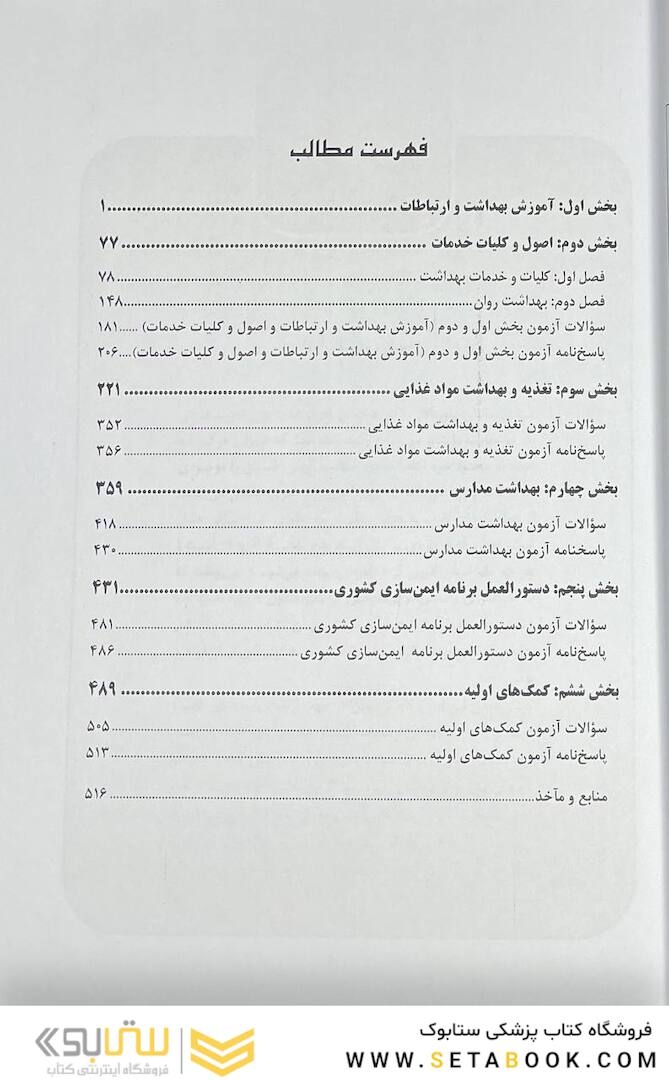 فهرست مطالب
بخش اول: آموزش بهداشت و ارتباطات ........ ۱
بخش دوم: اصول و کلیات خدمات ........ ۷۷
فصل اول: کلیات و خدمات بهداشت ........ ۷۸
فصل دوم: بهداشت روان ........ ۱۴۸
سؤالات آزمون بخش اول و دوم (آموزش بهداشت و ارتباطات و اصول و کلیات خدمات) ...... ۱۸۱
پاسخ‌نامه آزمون بخش اول و دوم (آموزش بهداشت و ارتباطات و اصول و کلیات خدمات) .... ۲۰۶
بخش سوم: تغذیه و بهداشت مواد غذایی ........ ۲۲۱
سؤالات آزمون تغذیه و بهداشت مواد غذایی ........ ۳۵۲
پاسخ‌نامه آزمون تغذیه و بهداشت مواد غذایی ........ ۳۵۶
بخش چهارم: بهداشت مدارس ........ ۳۵۹
سؤالات آزمون بهداشت مدارس ........ ۴۱۸
پاسخنامه آزمون بهداشت مدارس ........ ۴۳۰
بخش پنجم: دستورالعمل برنامه ایمن‌سازی کشوری ........ ۴۳۱
سؤالات آزمون دستورالعمل برنامه ایمن‌سازی کشوری ........ ۴۸۱
پاسخ‌نامه آزمون دستورالعمل برنامه ایمن‌سازی کشوری ........ ۴۸۶
بخش ششم: کمک‌های اولیه ........ ۴۸۹
سؤالات آزمون کمک‌های اولیه ........ ۵۰۵
پاسخ‌نامه آزمون کمک‌های اولیه ........ ۵۱۳
منابع و مآخذ ........ ۵۱۶
فروشگاه کتاب پزشکی ستابوک
WWW.SETABOOK.COM
ستابوک
فروشگاه اینترنتی کتاب